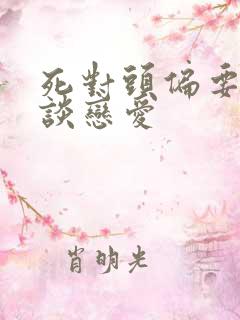 死對頭偏要
談戀愛
肖明光